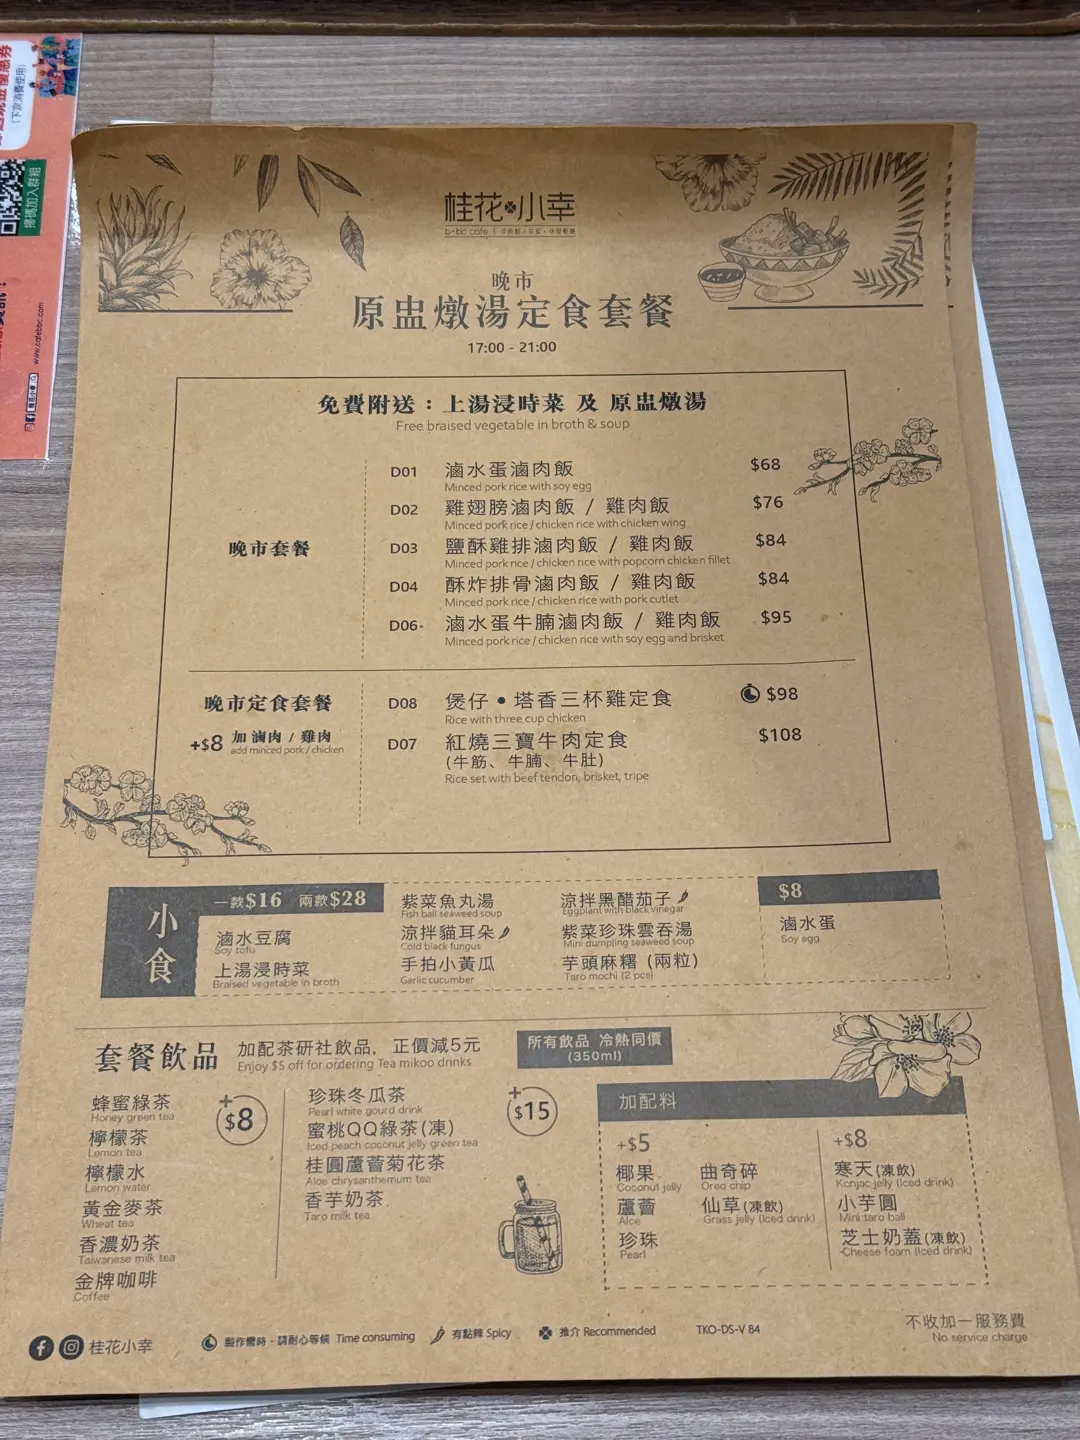 (下次消費使用)
掃碼加入群組
www.cafebbc.com
桂花小幸
桂花小幸
b+bc cafe
晚市
原盅燉湯定食套餐
17:00 - 21:00
免費附送：上湯浸時菜 及 原盅燉湯
Free braised vegetable in broth & soup
晚市套餐
D01 滷水蛋滷肉飯 $68
Minced pork rice with soy egg
D02 雞翅膀滷肉飯 / 雞肉飯 $76
Minced pork rice / chicken rice with chicken wing
D03 鹽酥雞排滷肉飯 / 雞肉飯 $84
Minced pork rice / chicken rice with popcorn chicken fillet
D04 酥炸排骨滷肉飯 / 雞肉飯 $84
Minced pork rice / chicken rice with pork cutlet
D06 滷水蛋牛腩滷肉飯 / 雞肉飯 $95
Minced pork rice / chicken rice with soy egg and brisket
晚市定食套餐
+$8 加 滷肉 / 雞肉
add minced pork / chicken
D08 煲仔 • 塔香三杯雞定食 $98
Rice with three cup chicken
D07 紅燒三寶牛肉定食 $108
(牛筋、牛腩、牛肚)
Rice set with beef tendon, brisket, tripe
小食
一款$16 兩款$28
滷水豆腐
Soy tofu
上湯浸時菜
Braised vegetable in broth
紫菜魚丸湯
Fish ball seaweed soup
涼拌貓耳朵
Cold black fungus
手拍小黃瓜
Garlic cucumber
涼拌黑醋茄子
Eggplant with black vinegar
紫菜珍珠雲吞湯
Mini dumpling seaweed soup
芋頭麻糬 (兩粒)
Taro mochi (2 pcs)
$8
滷水蛋
Soy egg
套餐飲品
加配茶研社飲品，正價減5元
Enjoy $5 off for ordering Tea mikoo drinks
所有飲品 冷熱同價
(350ml)
+$8
蜂蜜綠茶
Honey green tea
檸檬茶
Lemon tea
檸檬水
Lemon water
黃金麥茶
Wheat tea
香濃奶茶
Taiwanese milk tea
金牌咖啡
Coffee
+$15
珍珠冬瓜茶
Pearl white gourd drink
蜜桃QQ綠茶(凍)
Iced peach coconut jelly green tea
桂圓蘆薈菊花茶
Aloe chrysanthemum tea
香芋奶茶
Taro milk tea
加配料
+$5
椰果
Coconut jelly
蘆薈
Aloe
珍珠
Pearl
曲奇碎
Oreo chip
仙草(凍飲)
Grass jelly (Iced drink)
+$8
寒天(凍飲)
Konjac jelly (Iced drink)
小芋圓
Mini taro ball
芝士奶蓋(凍飲)
Cheese foam (Iced drink)
桂花小幸
製作需時，請耐心等候 Time consuming
有點辣 Spicy
推介 Recommended
TKO-DS-V 84
不收加一服務費
No service charge